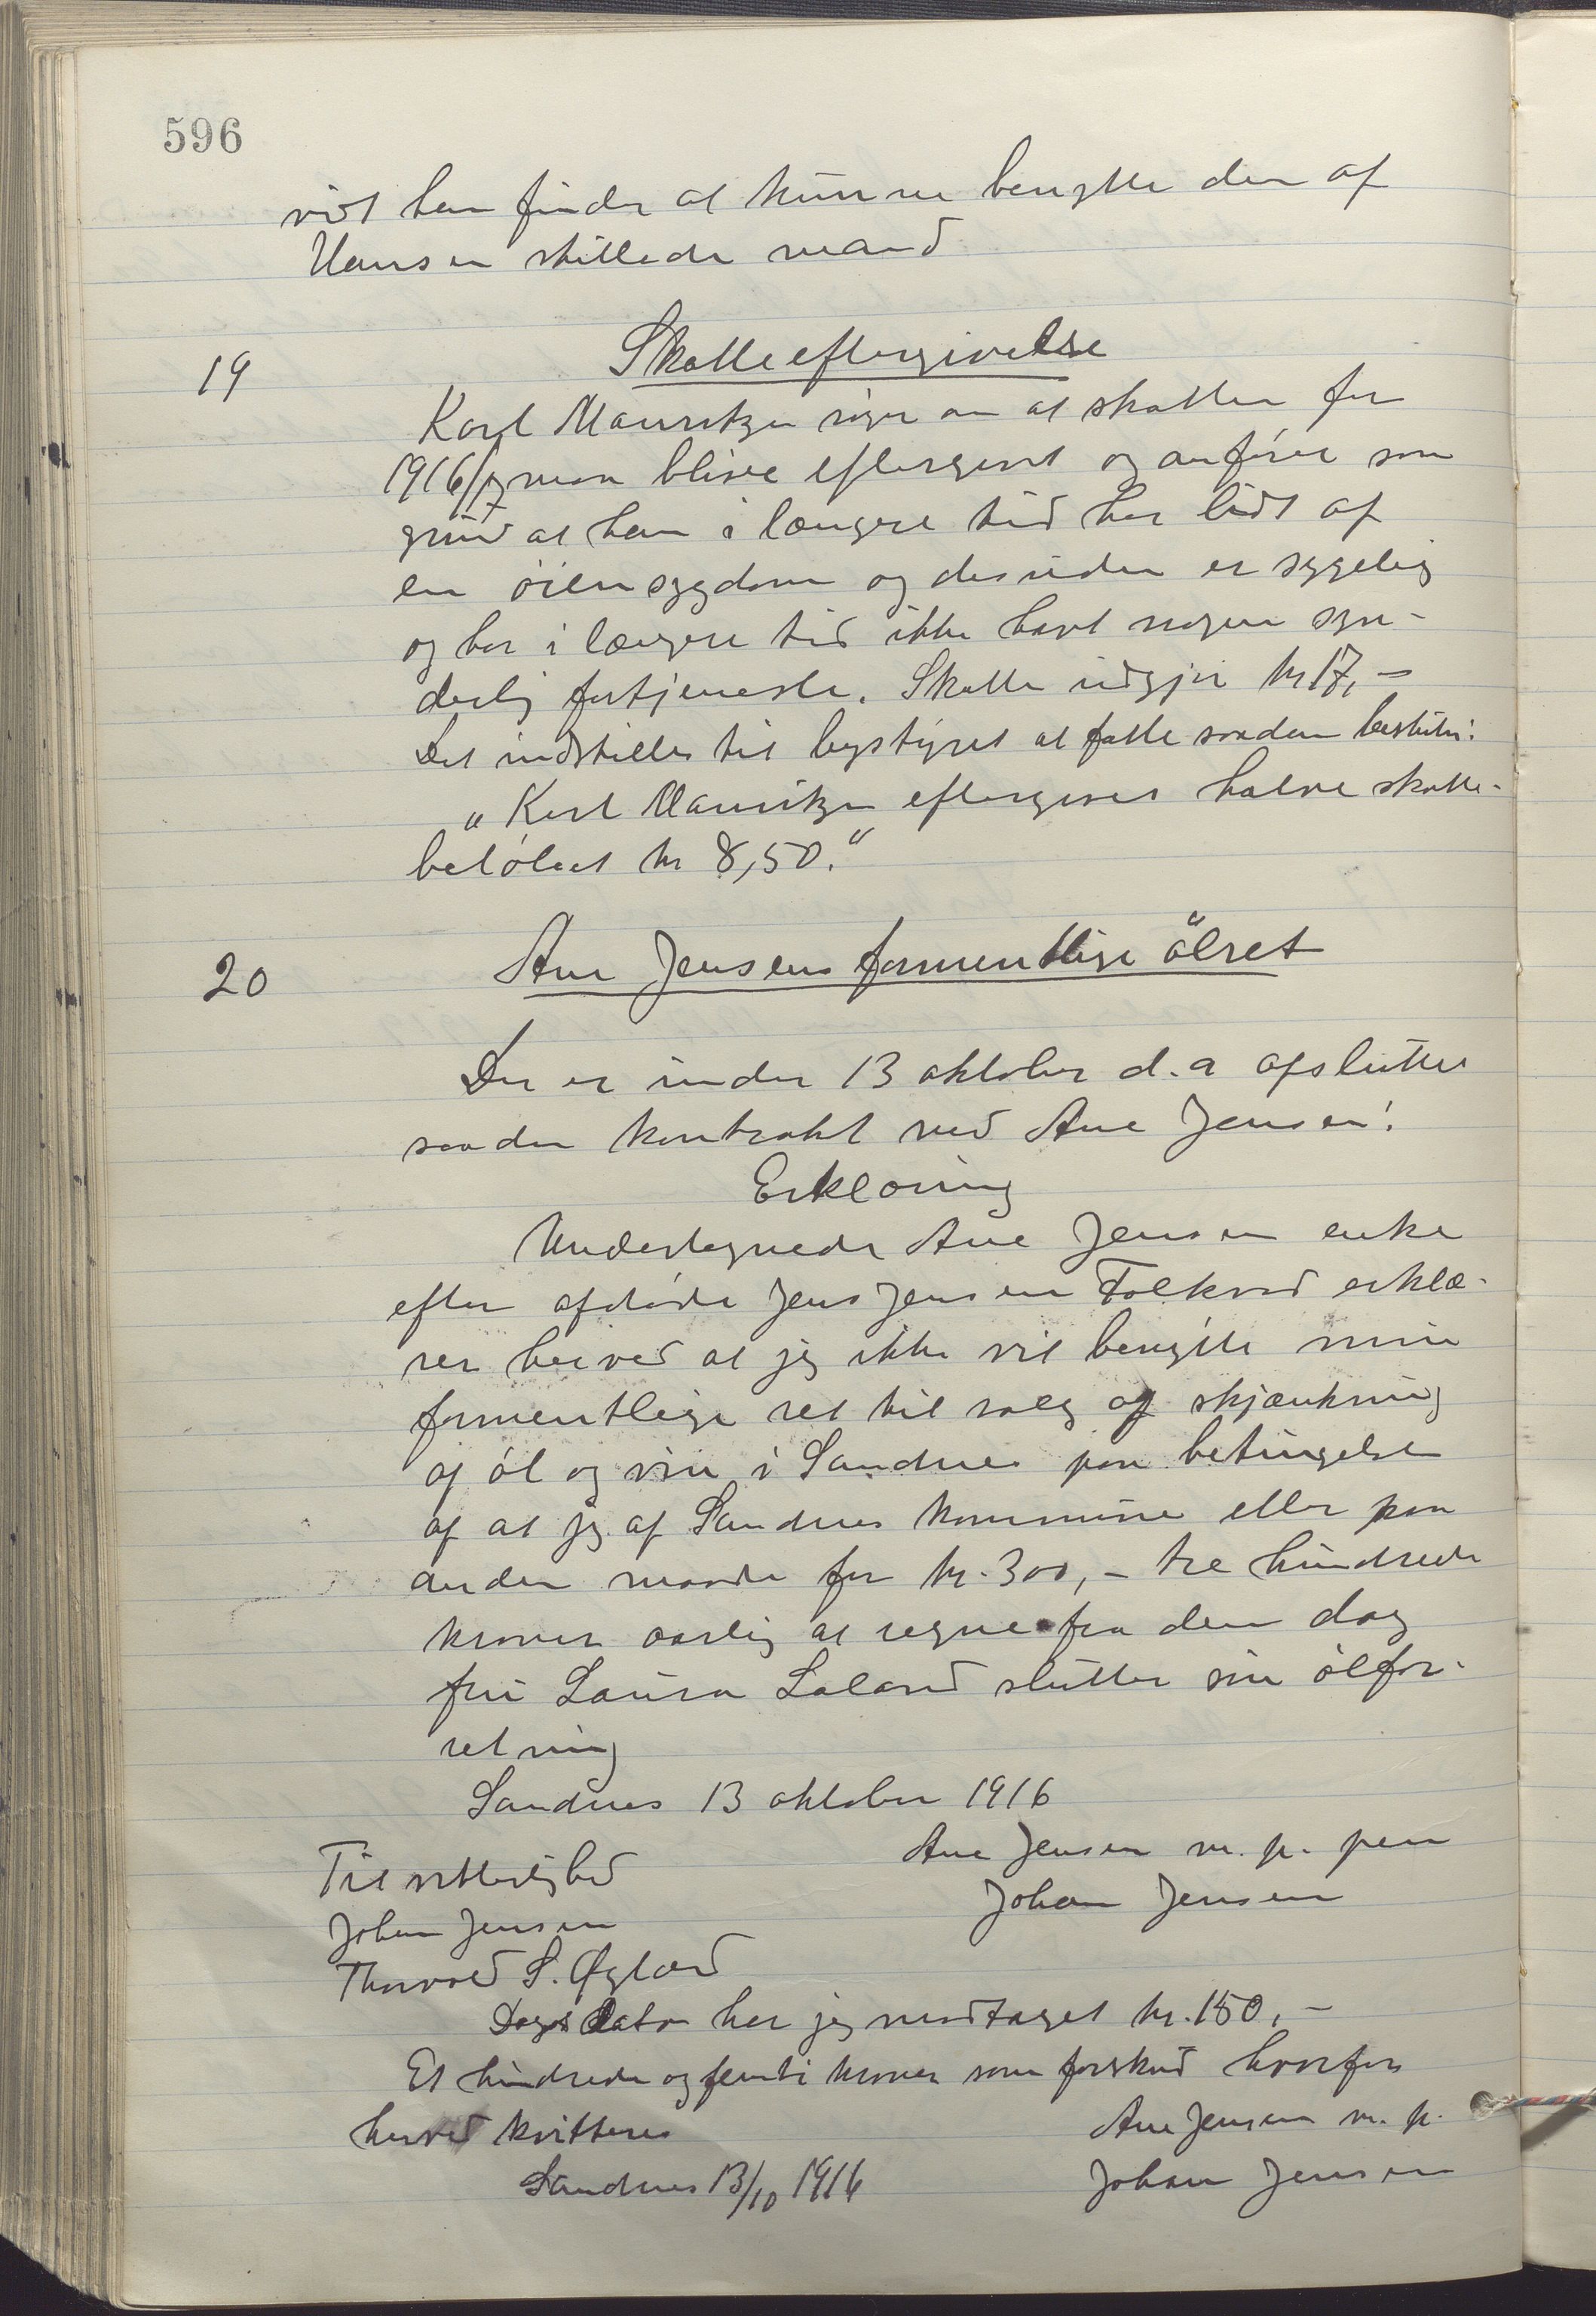 596
vidt han finder at kunne benytte den af
Hansen stillede mand
19
Skatteeftergivelse
Karl Mauritzen søger om at skatten for
1916/17 maa blive eftergivet og anfører som
grund at han i længere tid har lidt af
en øiensygdom og desuden er sygelig
og har i længere tid ikke havt nogen syn-
derlig fortjeneste. Skatten udgjør kr 17,-
Det indstilles til bystyret at fatte saadan beslutn:
„Karl Mauritzen eftergives halve skatte-
beløbet kr 8,50."
20
Ane Jensens formentlige ølret
Der er under 13 oktober d.a afsluttet
saadan kontrakt med Ane Jensen:
Erklæring
Undertegnede Ane Jensen enke
efter afdøde Jens Jensen Folkvord erklæ-
rer herved at jeg ikke vil benytte min
formentlige ret til salg og skjænkning
af øl og vin i Sandnes paa betingelse
af at jeg af Sandnes kommune eller paa
anden maade faar kr. 300,- tre hundrede
kroner aarlig at regne fra den dag
fru Laura Laland slutter sin ølfor-
retning
Sandnes 13 oktober 1916
Ane Jensen m. p. pen
Johan Jensen
Til vitterlighed
Johan Jensen
Thorvald S. Øglænd
Dags dato har jeg modtaget kr. 150,-
Et hundrede og femti kroner som forskud hvorfor
herved kvitteres
Ane Jensen m. p.
Sandnes 13/10 1916
Johan Jensen